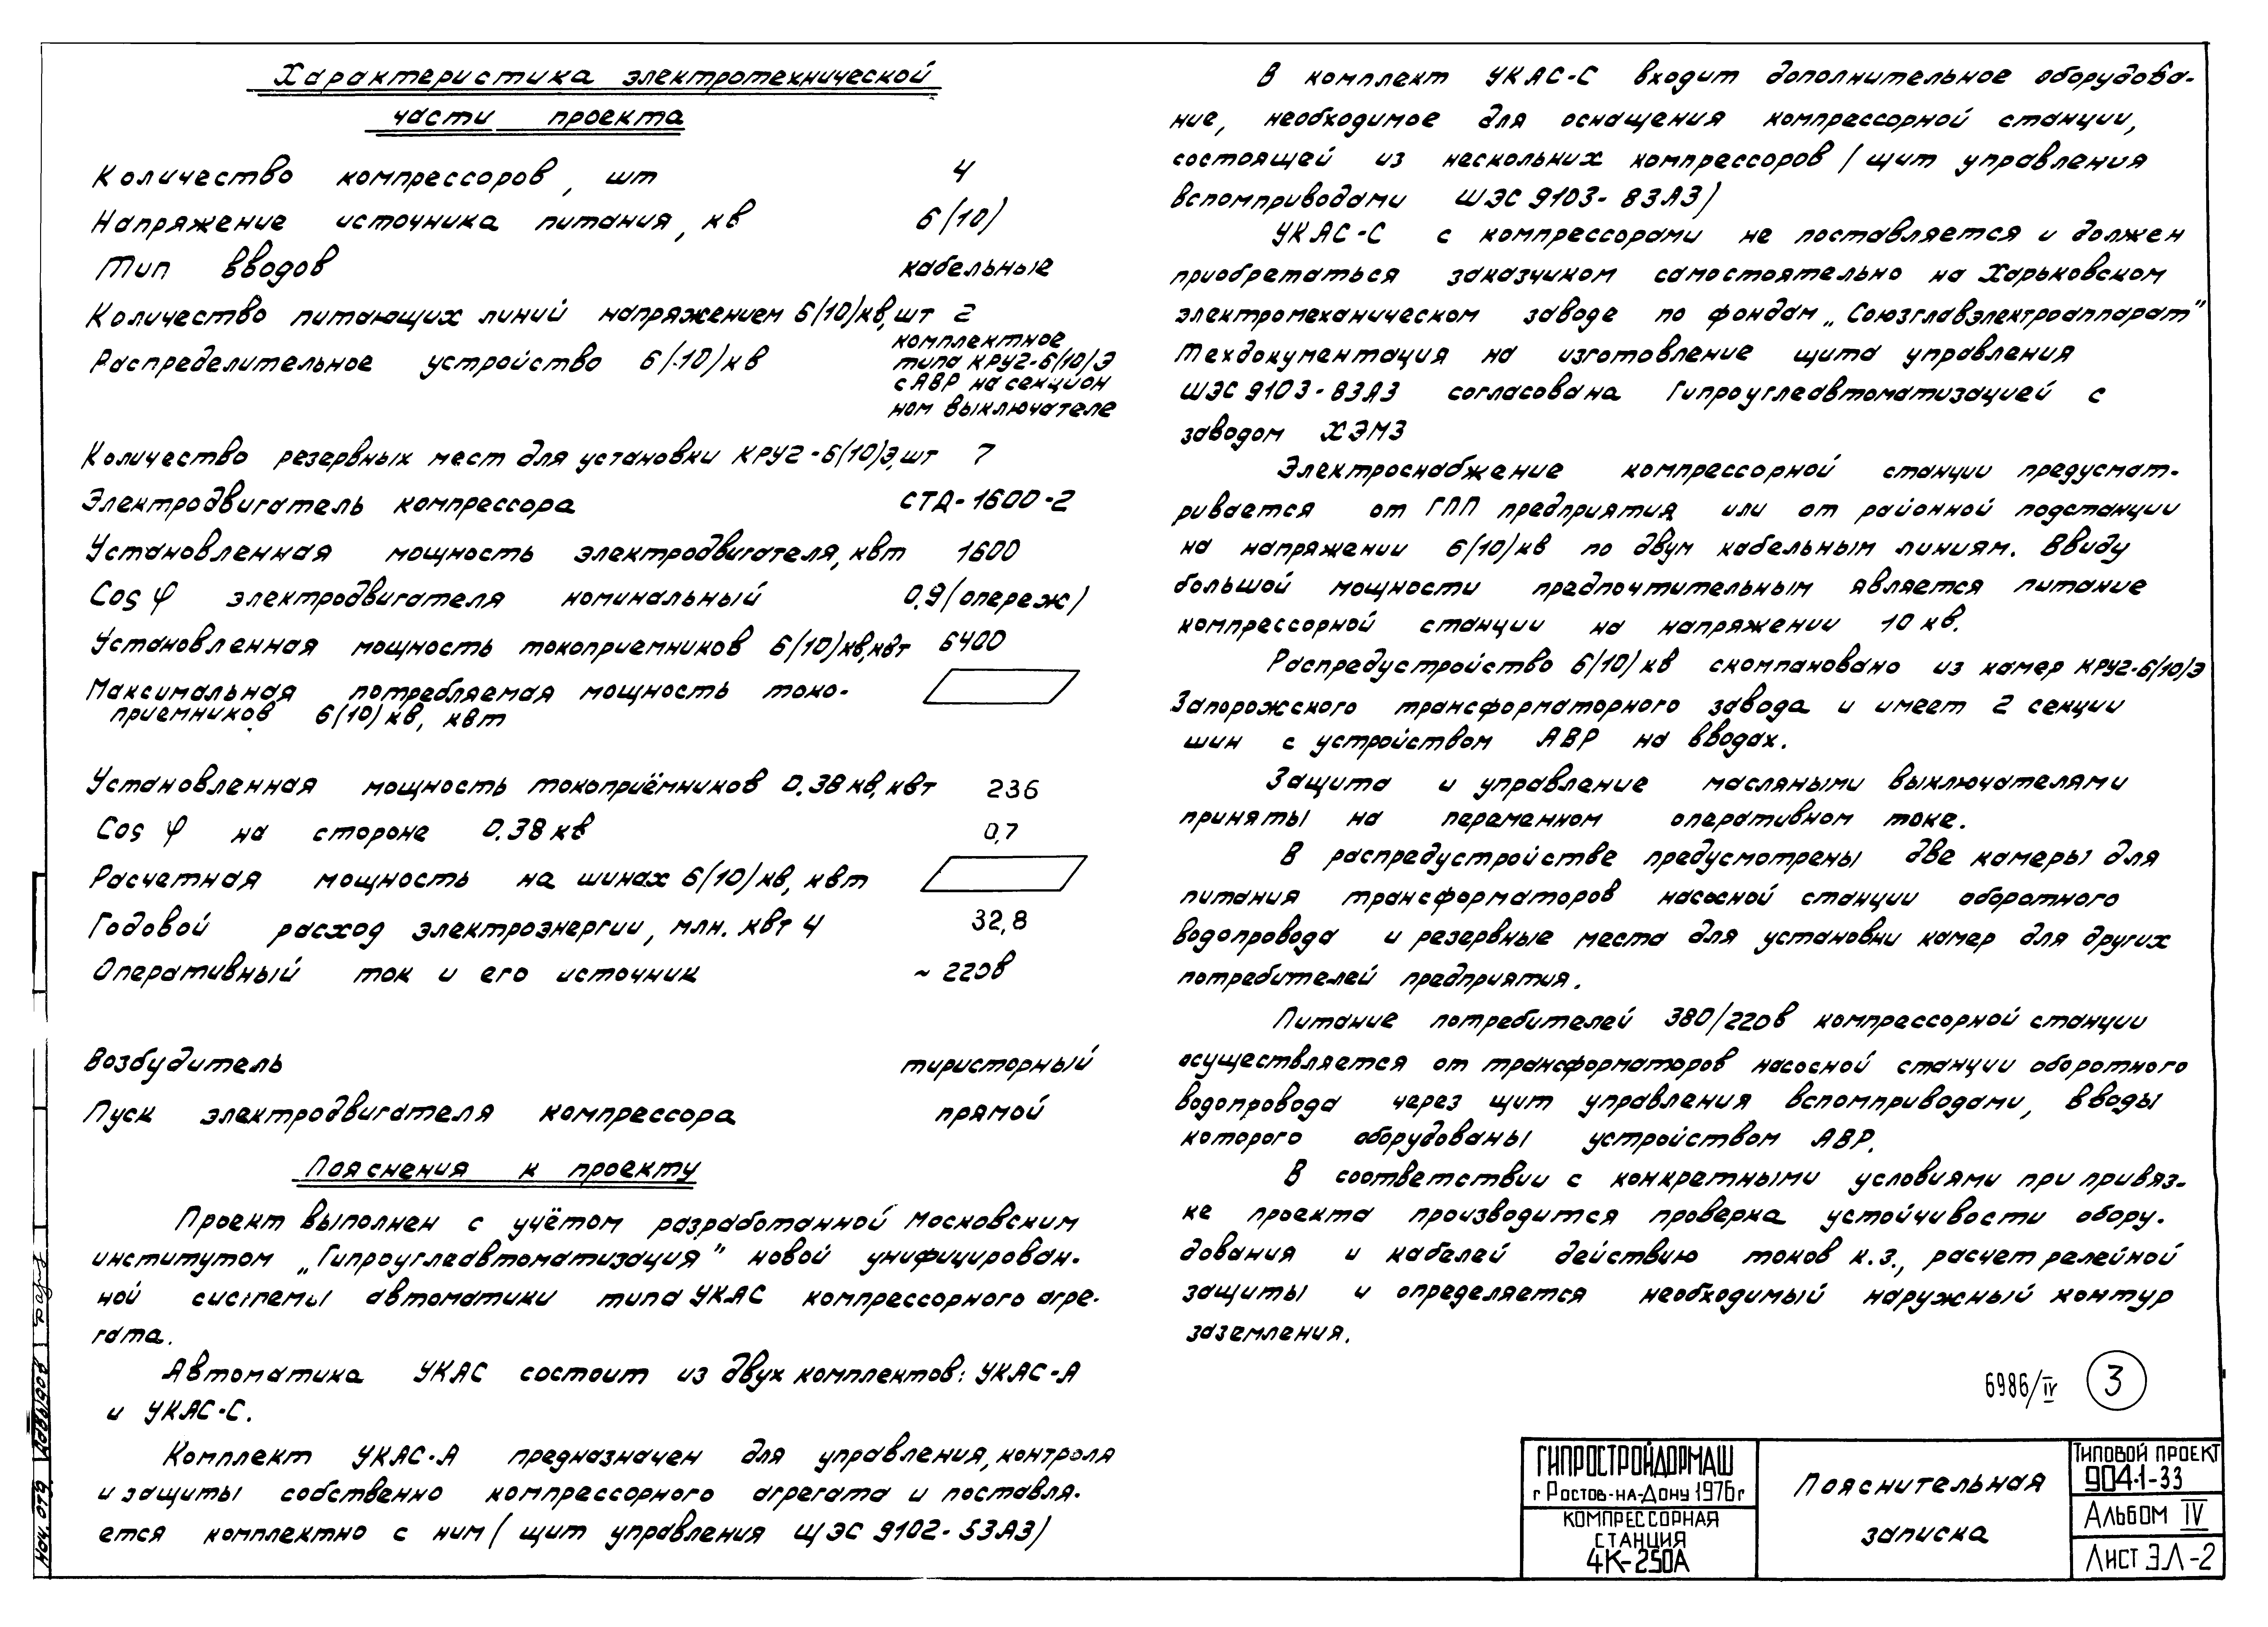 Характеристика электротехнической
части проекта
Количество компрессоров, шт 4
Напряжение источника питания, кв 6(10)
Тип вводов кабельные
Количество питающих линий напряжением 6(10)кв, шт 2
Распределительное устройство 6(10)кв комплектное
типа КРУ2-6(10)Э
с АВР на секцион
ном выключателе
Количество резервных мест для установки КРУ2-6(10)Э, шт 7
Электродвигатель компрессора СТД-1600-2
Установленная мощность электродвигателя, квт 1600
Cos φ электродвигателя номинальный 0,9(опереж)
Установленная мощность токоприемников 6(10)кв, квт 6400
Максимальная потребляемая мощность токо-
приемников 6(10)кв, квт
Установленная мощность токоприёмников 0.38кв, квт 236
Cos φ на стороне 0.38кв 0,7
Расчетная мощность на шинах 6(10)кв, квт
Годовой расход электроэнергии, млн. квт ч 32,8
Оперативный ток и его источник ~ 220в
Возбудитель тиристорный
Пуск электродвигателя компрессора прямой
Пояснения к проекту
Проект выполнен с учётом разработанной Московским
институтом „Гипроуглеавтоматизация" новой унифицирован-
ной системы автоматики типа УКАС компрессорного агре-
гата.
Автоматика УКАС состоит из двух комплектов: УКАС-А
и УКАС-С.
Комплект УКАС-А предназначен для управления, контроля
и защиты собственно компрессорного агрегата и поставля-
ется комплектно с ним (щит управления ЩЭС 9102-53А3)
В комплект УКАС-С входит дополнительное оборудова-
ние, необходимое для оснащения компрессорной станции,
состоящей из нескольких компрессоров (щит управления
вспомприводами ШЭС 9103-83А3)
УКАС-С с компрессорами не поставляется и должен
приобретаться заказчиком самостоятельно на Харьковском
электромеханическом заводе по фондам „Союзглавэлектроаппарат"
Техдокументация на изготовление щита управления
ШЭС 9103-83А3 согласована Гипроуглеавтоматизацией с
заводом ХЭМЗ
Электроснабжение компрессорной станции предусмат-
ривается от ГПП предприятия или от районной подстанции
на напряжении 6(10)кв по двум кабельным линиям. Ввиду
большой мощности предпочтительным является питание
компрессорной станции на напряжении 10 кв.
Распредустройство 6(10)кв скомпановано из камер КРУ2-6(10)Э
Запорожского трансформаторного завода и имеет 2 секции
шин с устройством АВР на вводах.
Защита и управление масляными выключателями
приняты на переменном оперативном токе.
В распредустройстве предусмотрены две камеры для
питания трансформаторов насосной станции оборотного
водопровода и резервные места для установки камер для других
потребителей предприятия.
Питание потребителей 380/220в компрессорной станции
осуществляется от трансформаторов насосной станции оборотного
водопровода через щит управления вспомприводами, вводы
которого оборудованы устройством АВР.
В соответствии с конкретными условиями при привяз-
ке проекта производится проверка устойчивости обору-
дования и кабелей действию токов к.з., расчет релейной
защиты и определяется необходимый наружный контур
заземления.
6986/IV 3
ГИПРОСТРОЙДОРМАШ
г Ростов-на-Дону 1976г
КОМПРЕССОРНАЯ
СТАНЦИЯ
4К-250А
Пояснительная
записка
ТИПОВОЙ ПРОЕКТ
904-1-33
Альбом IV
Лист ЭЛ-2
Нач. отд.